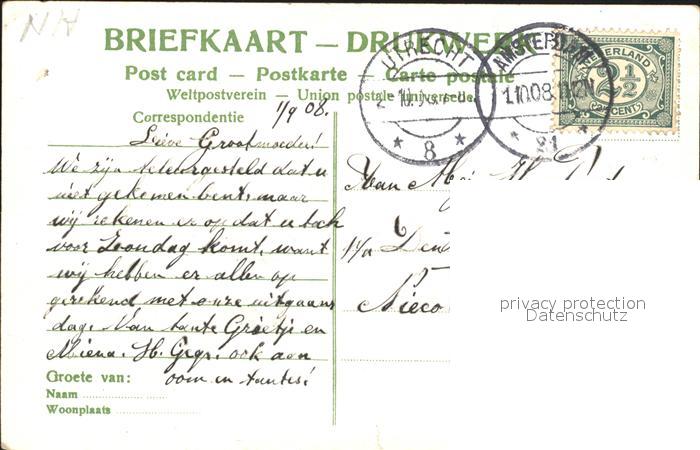 NH
BRIEFKAART — DRUKWERK
Post card — Postkarte — Carte postale
Weltpostverein — Union postale universelle
Correspondentie
1/9 08.
UTRECHT
8
AMSTERDAM
1.10.08 11-12N
21
NEDERLAND
2½
CENT
Lieve Grootmoeder!
We zijn teleurgesteld dat u
niet gekomen bent, maar
wij rekenen er op dat u toch
voor Zondag komt, want
wij hebben er allen op
gerekend met onze uitgaans
dag. Van tante Grietje en
Miena. H. Grgr. ook aan
oom en tantes!
Groete van:
Naam
Woonplaats
Aan Mej. H.
p/a
Nieco
privacy protection
Datenschutz